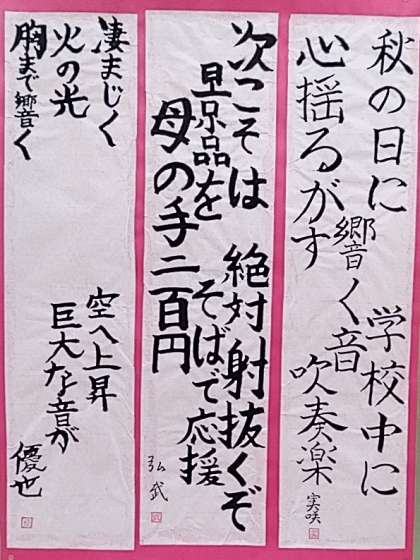 秋の日に 学校中に
響く音
心揺るがす 吹奏楽
実咲
次こそは 絶対射抜くぞ
景品を そばで応援
母の手二百円
弘武
凄まじく 空へ上昇
火の光 巨大な音が
胸まで響く
優也